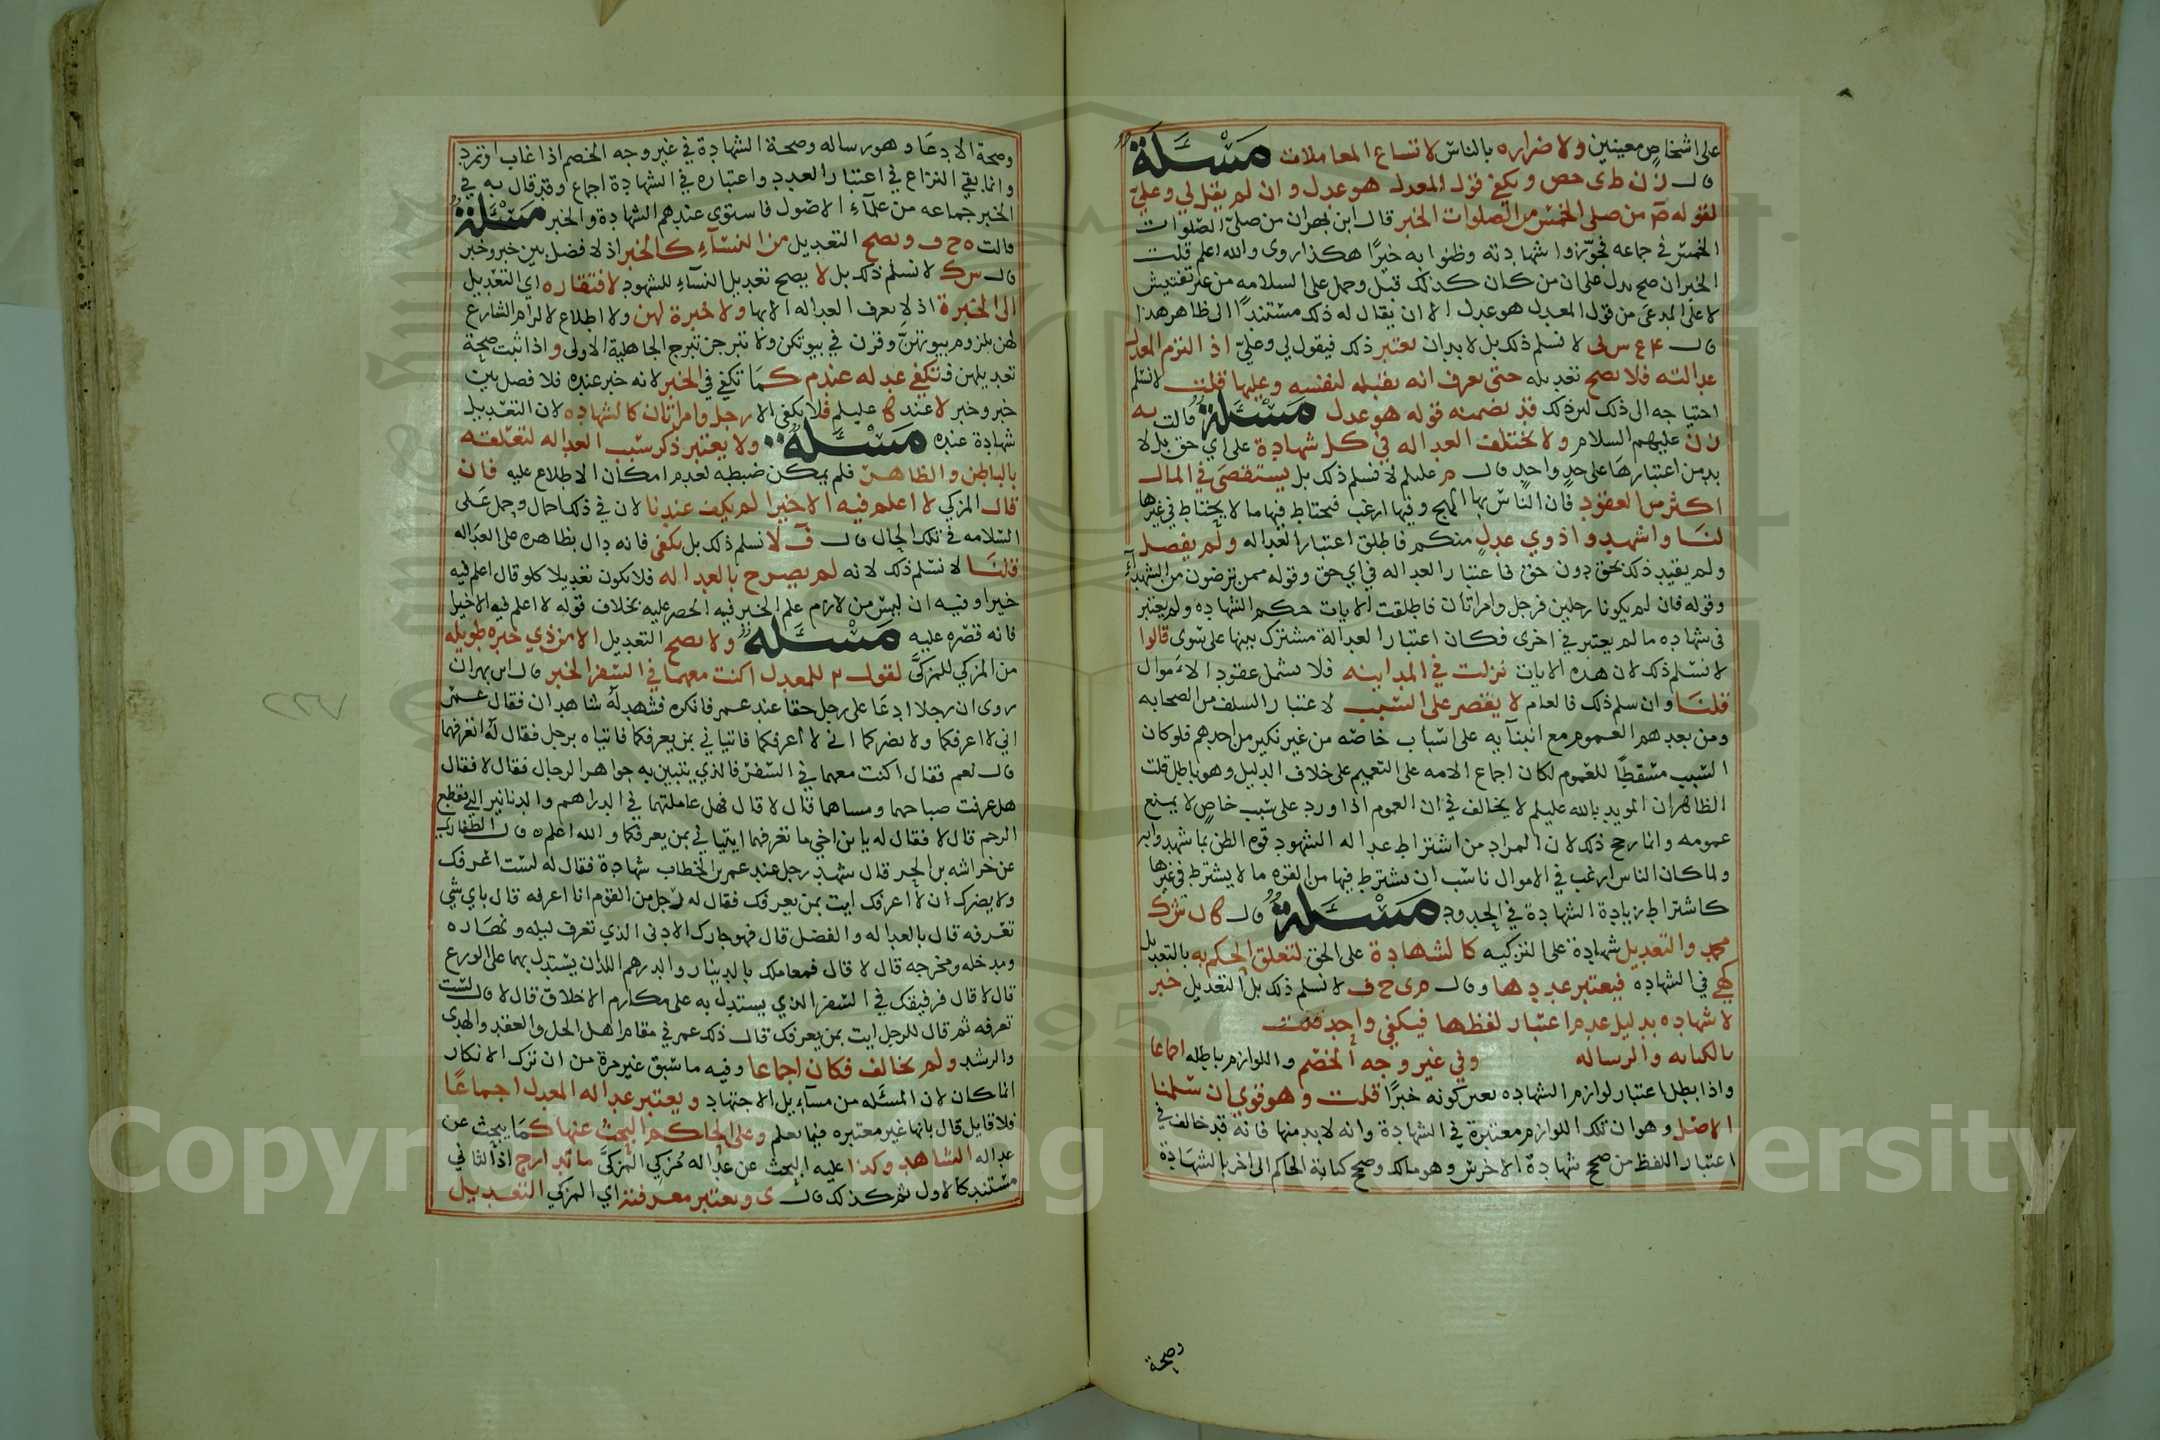 على اشخاص معينين ولا ضراره بالناس لاتساع المعاملات مسئلة
قال ن ط ى حص ويكفي قول المعدل هو عدل وان لم يقل لي وعليّ
لقوله صم من صلى الخمس من الصلوات الخبر قال ابن بهران من صلى الصلوات
الخمس في جماعه فجوّزوا شهادته وظنوا به خيرًا هكذا روى والله اعلم قلت
الخبر ان صح يدل على ان من كان كذلك قبل وحمل على السلامه من غير تفتيش
لا على المدعى من قول المعدل هو عدل الا ان يقال له ذلك مستندًا الى ظاهر هذا
قال لا نسلم ذلك بل لابد ان يعتبر ذلك فيقول لي وعليّ اذ التزم المعدل
عدالته فلا يصح تعديله حتى يعرف انه يقبله لنفسه وعليها قلت لا نسلم
احتياجه الى ذلك قد تضمنه قوله هو عدل مسئلة قالت يه
ن عليهم السلام ولا تختلف العداله في كل شهادة على اي حق بل لا
بد من اعتبارها على حدٍ واحدٍ قال م عليلم لا نسلم ذلك بل يستقصى في المال
اكثر من العقود فان الناس بها الهج وفيها ارغب فيحتاط فيها ما لا يحتاط في غيرها
لنا واشهدوا ذوي عدل منكم فاطلق اعتبار العداله ولم يفصل
ولم يقيد ذلك بحق دون حق فاعتبار العداله في اي حق وقوله ممن ترضون من الشهدآء
وقوله فان لم يكونا رجلين فرجل وامراتان فاطلقت الايات حكم الشهاده ولم يعتبر
في شهاده ما لم يعتبر في اخرى فكان اعتبار العدالة مشترك بينها على سوى قالوا
لا نسلم ذلك لان هذه الايات نزلت في المداينه فلا تشمل عقود الاموال
قلنا وان سلم ذلك فالعام لا يقصر على السبب لاعتبار السلف من الصحابه
ومن بعدهم العموم مع انبنآيه على اسباب خاصه من غير نكير من احدهم فلو كان
السبب مسقطًا للعموم لكان اجماع الامه على التعميم على خلاف الدليل وهو باطل قلت
الظاهر ان المويد بالله عليلم لا يخالف في ان العموم اذا ورد على سبب خاص لا يمنع
عمومه وانما رجح ذلك لان المراد من اشتراط عداله الشهود قوة الظن بما شهدوا به
ولما كان الناس ارغب في الاموال ناسب ان يشترط فيها من القوه ما لا يشترط في غيرها
كاشتراط زيادة الشهادة في الحدود مسئلة قال ش ك
محمد والتعديل شهادة على التزكيه كالشهادة على الحق لتعلق الحكم به بالتعديل
كهي في الشهاده فيعتبر عددها وقال م ى ح ف لا نسلم ذلك بل التعديل خبر
لا شهاده بدليل عدم اعتبار لفظها فيكفي واحد
بالكتابه والرساله وفي غير وجه الخصم واللوازم باطله اجماعا
واذا بطل اعتبار لوازم الشهاده تعين كونه خبرًا قلت وهو قوي ان سلمنا
الاصل وهو ان تلك اللوازم معتبرة في الشهادة وانه لا بد منها فانه قد خالف في
اعتبار اللفظ من صحح شهادة الاخرس وهو مالك وصحح كتابة الحاكم الى اخر بالشهادة
وصحة
وصحة الادعا وهو رساله وصحة الشهادة في غير وجه الخصم اذا غاب او تمرد
وانما بقي النزاع في اعتبار العدد واعتباره في الشهادة اجماع وقد قال به في
الخبر جماعه من علمآء الاصول فاستوى عندهم الشهادة والخبر مسئلة
قالت ه ح ف ويصح التعديل من النسآء كالخبر اذ لا فصل بين خبر وخبر
قال س ك لا نسلم ذلك بل لا يصح تعديل النسآء للشهود لافتقاره اي التعديل
الى الخبرة اذ لا يعرف العداله الا بها ولا خبرة لهن ولا اطلاع لالزام الشارع
لهن بلزوم بيوتهنّ وقرن في بيوتكن ولا تبرجن تبرج الجاهلية الاولى واذا ثبت صحة
تعديلهن فتكفي عدله عند م كما تكفي في الخبر لانه خبر عنده فلا فصل بين
خبر وخبر لا عند عليلم فلا يكفي الا رجل وامراتان كالشهاده لان التعديل
شهادة عنده مسئلة ولا يعتبر ذكر سبب العداله لتعلقه
بالباطن والظاهر فلم يمكن ضبطه لعدم امكان الاطلاع عليه فان
قال المزكي لا اعلم فيه الا خيرا لم يكف عندنا لان في ذلك احمال وحمل على
السلامه في تلك الحال قال ف لا نسلم ذلك بل يكفي فانه دال بظاهره على العداله
قلنا لا نسلم ذلك لانه لم يصرح بالعداله فلا يكون تعديلا كلو قال اعلم فيه
خيرا وفيه ان ليس من لازم علم الخير فيه الحصر عليه بخلاف قوله لا اعلم فيه الا خيرا
فانه قصره عليه مسئلة ولا يصح التعديل الا من ذي خبره طويله
من المزكي للمزكَّى لقول للمعدل اكنت معهما في السفر الخبر قال ابن بهران
روى ان رجلا ادعا على رجل حقا عند عمر فانكره فشهد له شاهدان فقال عمر
اني لا اعرفكما ولا يضركما اني لا اعرفكما فاتياني بمن يعرفكما فاتياه برجل فقال له اتعرفهما
قال نعم فقال اكنت معهما في السفر فالذي يتبين به جواهر الرجال فقال لا فقال
هل عرفت صباحهما ومساهما قال لا قال فهل عاملتهما في الدراهم والدنانير التي تقطع
الرحم قال لا فقال له يا بن اخي ما تعرفهما ايتياني بمن يعرفكما والله اعلم قال
عن خراشه بن الحر قال شهد رجل عند عمر بن الخطاب شهادة فقال له لست اعرفك
ولا يضرك ان لا اعرفك ايت بمن يعرفك فقال له رجل من القوم انا اعرفه قال باي شي
تعرفه قال بالعداله والفضل قال فهو جارك الادنى الذي تعرف ليله ونهاره
ومدخله ومخرجه قال لا قال فمعاملك بالدينار والدرهم اللذان يستدل بهما على الورع
قال لا قال فرفيقك في السفر الذي يستدل به على مكارم الاخلاق قال لا قال لست
تعرفه ثم قال للرجل ايت بمن يعرفك قال ذلك عمر في مقام اهل الحل والعقد والهدى
والرشد ولم يخالف فكان اجماعا وفيه ما سبق غير مرة من ان ترك الانكار
انما كان لان المسئله من مسآيل الاجتهاد ويعتبر عداله المعدل اجماعًا
فلا قايل قال بانها غير معتبره فيما نعلم وعلى الحاكم البحث عنها كما يبحث عن
عداله الشاهد وكذا عليه البحث عن عداله مزكي المزكَّي ما تدارج اذ الثاني
مستند كالاول ثم كذلك قال ى ويعتبر معرفته اي المزكي التعديل
Copyright © King Saud University
1957